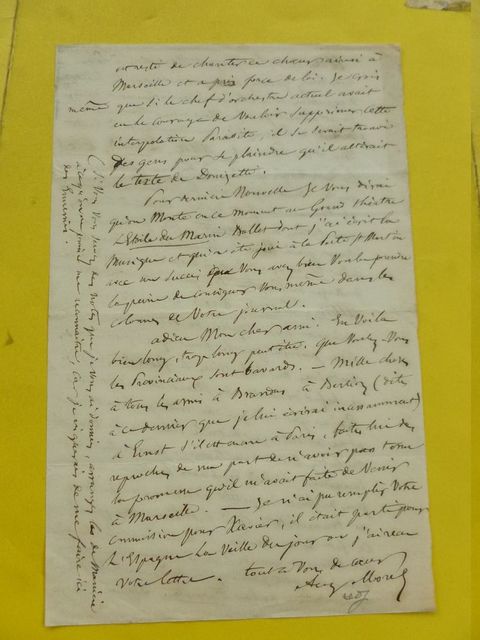 est resté de chanter ce chœur ainsi à
Marseille et a pris force de loi. Je crois
même que si le chef d'orchestre actuel avait
eu le courage de vouloir supprimer cette
interpolation parasite, il se serait trouvé
des gens pour se plaindre qu'il altérait
le texte de Donizetti.
Pour dernière nouvelle je vous dirai
qu'on monte en ce moment au Grand théâtre
L'Etoile du Marin Ballet dont j'ai écrit la
musique et qui a été joué à la Porte St Martin
avec un succès que vous avez bien voulu prendre
la peine de consigner vous même dans les
colonnes de votre journal.
adieu Mon cher ami. En voilà
bien long, trop long peut être, que voulez-vous
les Provinciaux sont bavards. — Mille choses
à tous les amis à Brandus à Berlioz (dites
à ce dernier que je lui écrirai incessamment)
à Ernst s'il est encore à Paris, faites lui des
reproches de ma part de n'avoir pas tenu
la promesse qu'il m'avait faite de venir
à Marseille. — Je n'ai pu remplir votre
commission pour Xavier, il était parti pour
L'Espagne la veille du jour où j'ai reçu
votre lettre. tout à vous de cœur
Aug Morel
(Si vous vous servez des notes que je vous ai données, arrangez les de manière
à ce qu'on ne puisse me reconnaître, car je risquerais de me faire ici
des Ennemis.